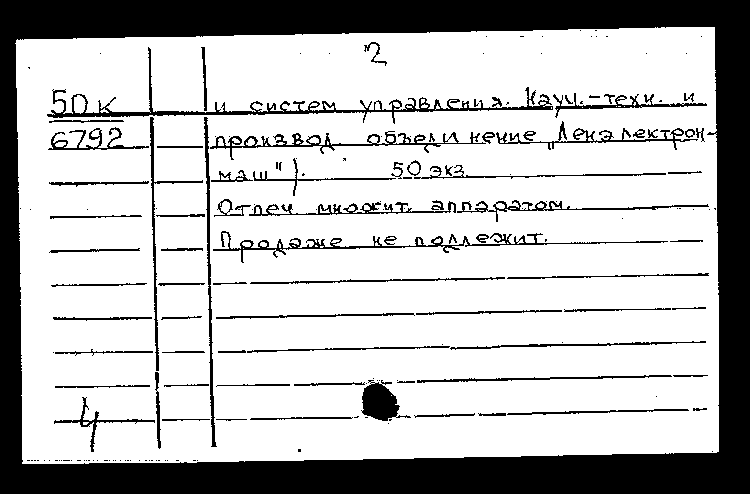 2
50 к
6792
и систем управления. Науч.-техн. и
производ. объединение „Ленэлектрон-
маш"). 50 экз
Отпеч множит. аппаратом.
Продаже не подлежит.
4